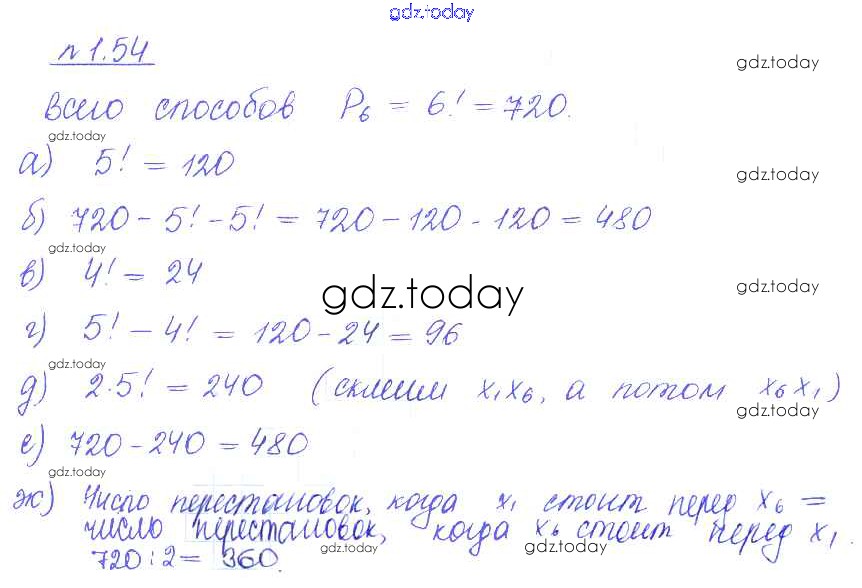 gdz.today
№ 1.54
gdz.today
Всего способов P₆ = 6! = 720.
gdz.today
а) 5! = 120
gdz.today
б) 720 - 5! - 5! = 720 - 120 - 120 = 480
gdz.today
в) 4! = 24
gdz.today
gdz.today
г) 5! - 4! = 120 - 24 = 96
gdz.today
д) 2·5! = 240 (склеим x₁x₆, а потом x₆x₁)
gdz.today
е) 720 - 240 = 480
gdz.today
ж) Число перестановок, когда x₁ стоит перед x₆ =
число перестановок, когда x₆ стоит перед x₁.
gdz.today
720 : 2 = 360.